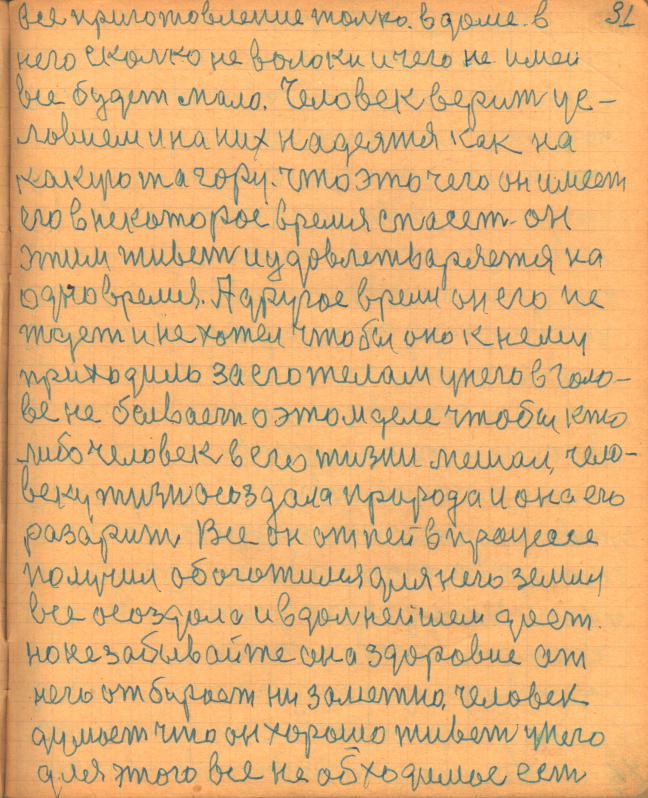 31
все приготовление толко. в доме. в
него сколко не волоки и чего не имей
все будет мало. Человек верит це-
ловием и на них надеятя как на
какуюта гору. что это чего он имеет
его в некоторое время спасет. он
этим живет и удовлетваряетя на
одно время. А другое время он его не
ждет и не хотел чтобы оно к нему
приходило за его телам у него в голо-
ве не бывает о этом деле чтобы кто
либо человек в его жизни мешал, чело-
веку жизн осоздала природа и она его
разарит. Все он от ней в процессе
получил обоготился для него земля
все осоздала и в далнейшем дает.
но не забывайте она здоровие от
него отбирает ни заметно, человек
думает что он хорошо живет у него
для этого все необходимое ест